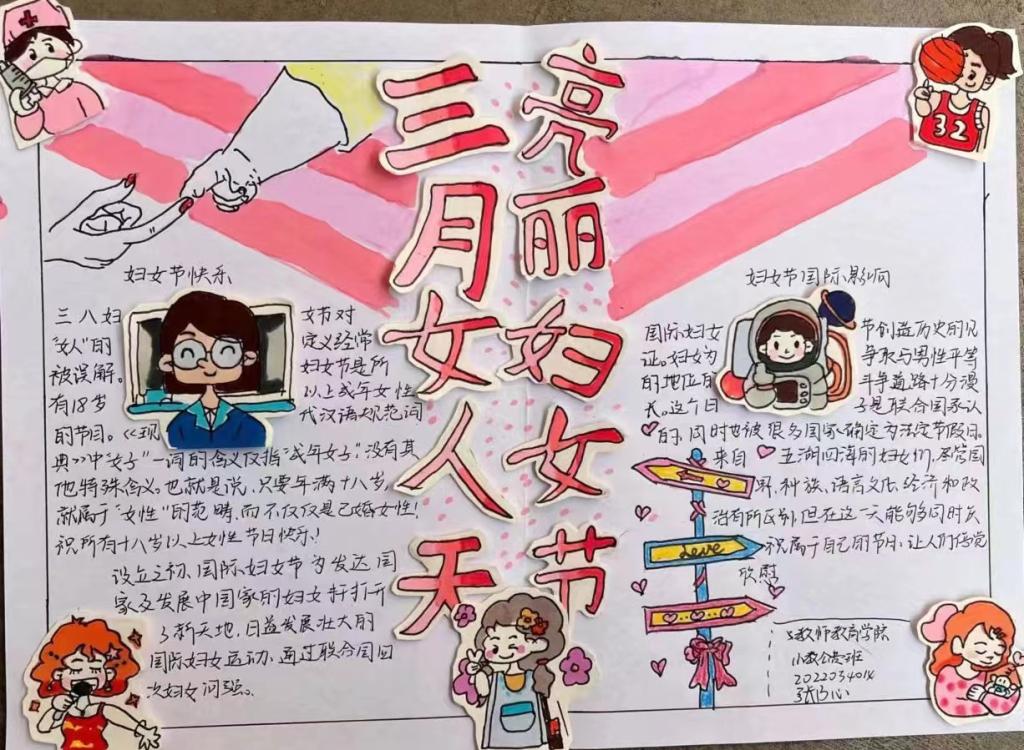 三月女人天
亮丽妇女节
32
妇女节快乐
三八妇女节对
"女人"的定义经常
被误解。妇女节是所
有18岁以上成年女性
的节日。《现代汉语规范词
典》中"女子"一词的含义仅指"成年女子",没有其
他特殊含义。也就是说,只要年满十八岁,
就属于"女性"的范畴,而不仅仅是已婚女性!
祝所有十八岁以上女性节日快乐!
设立之初,国际妇女节为发达国
家及发展中国家的妇女打开
了新天地,日益发展壮大的
国际妇女运动,通过联合国四
次妇女问强。
妇女节国际影响
国际妇女节创造历史的见
证。妇女为争取与男性平等
的地位的斗争道路十分漫
长。这个日子是联合国承认
的,同时也被很多国家确定为法定节假日。
来自五湖四海的妇女们,尽管国
界、种族、语言文化、经济和政
治有所区别,但在这一天能够同时关
祝属于自己的节日,让人们倍觉
欣慰
love
教师教育学院
小教公费班
张